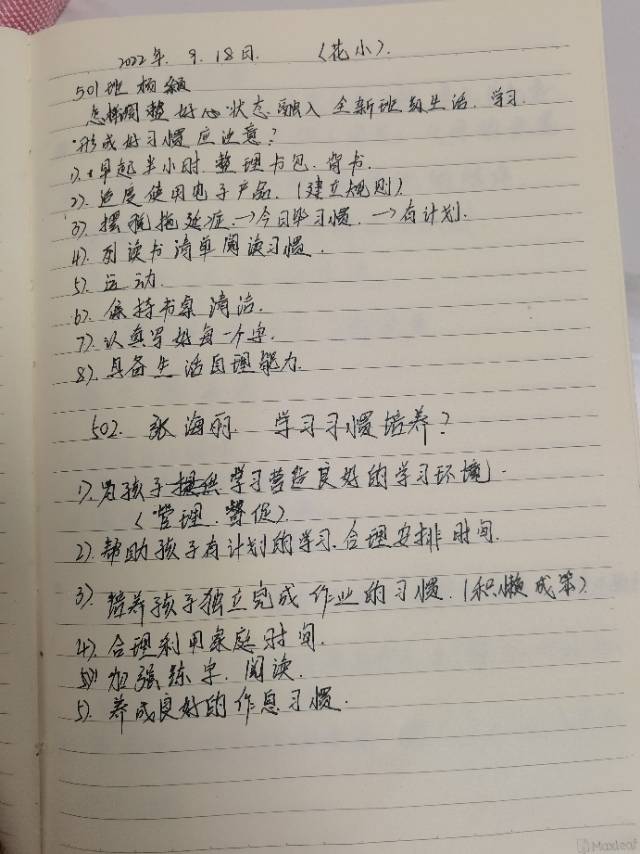 2022年. 9. 18日. (花小).
501班 杨颖
怎样调整好心状态融入全新班级生活.学习.
形成好习惯应注意?
1). 早起半小时.整理书包.背书.
2). 适度使用电子产品.(建立规则)
3) 摆脱拖延症.→今日毕习惯.→有计划.
4). 列读书清单阅读习惯.
5). 运动.
6). 保持书桌清洁.
7). 认真写好每一个字.
8). 具备生活自理能力.
502. 张海丽. 学习习惯培养?
1). 为孩子提供学习营造良好的学习环境.
(管理.督促).
2). 帮助孩子有计划的学习.合理安排时间.
3). 培养孩子独立完成作业的习惯.(积懒成笨)
4). 合理利用家庭时间.
5) 加强练字.阅读.
5). 养成良好的作息习惯.
Maxleaf